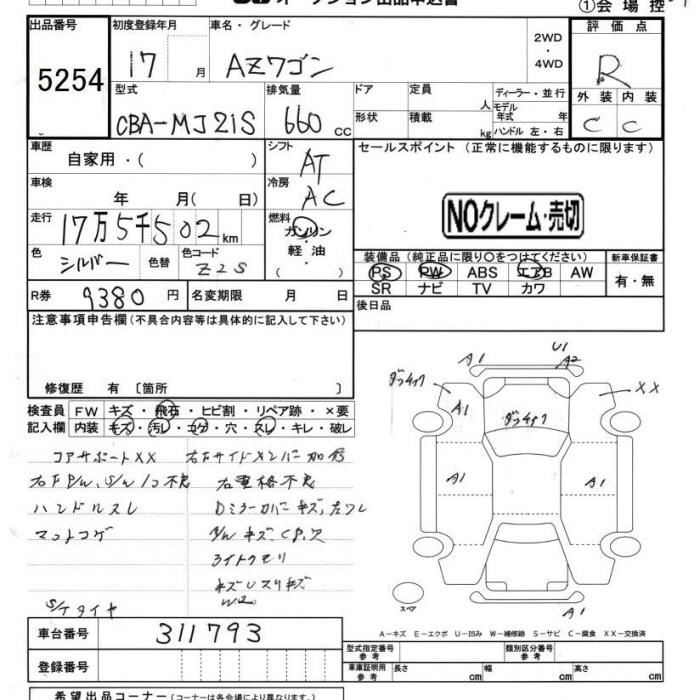 オークション出品申込書
①会場控
出品番号
5254
初度登録年月
17 月
車名・グレード
AZワゴン
2WD
・
4WD
評価点
R
型式
CBA-MJ21S
排気量
660 cc
ドア
形状
定員 人
積載 kg
ディーラー・並行
モデル年式 年
ハンドル 左・右
外装 内装
C C
車歴
自家用・( )
シフト
AT
セールスポイント (正常に機能するものに限ります)
NOクレーム・売切
車検
年 月( 日)
冷房
AC
走行
17万5千502km
燃料
ガソリン・
軽油
色
シルバー
色替
色コード
Z2S
装備品 (純正品に限り〇をつけてください)
PS PW ABS エアB AW
SR ナビ TV カワ
新車保証書
有・無
R券
9380 円
名変期限 月 日
後日品
注意事項申告欄 (不具合内容等は具体的に記入して下さい)
修復歴 有 [箇所 ]
検査員
記入欄
FW キズ・飛石・ヒビ割・リペア跡・×要
内装 キズ・汚レ・コゲ・穴・スレ・キレ・破レ
コアサポートXX
右F P/W, S/W 1コ不良
右電格不良
ハンドルスレ
Dミラーカバーキズ, 左ワレ
マットコゲ
ライトクモリ
キズUスリキズ
W2
S/Tタイヤ
A1
U1
A2
XX
A1
A1
A1
A1
スペア
A－キズ E－エクボ U－凹み W－補修跡 S－サビ C－腐食 XX－交換済
車台番号
311793
登録番号
型式指定番号
参考
類別区分番号
参考
車庫証明用
参考
長さ cm
幅 cm
高さ cm
希望出品コーナー (コーナーは各会場により異なります)